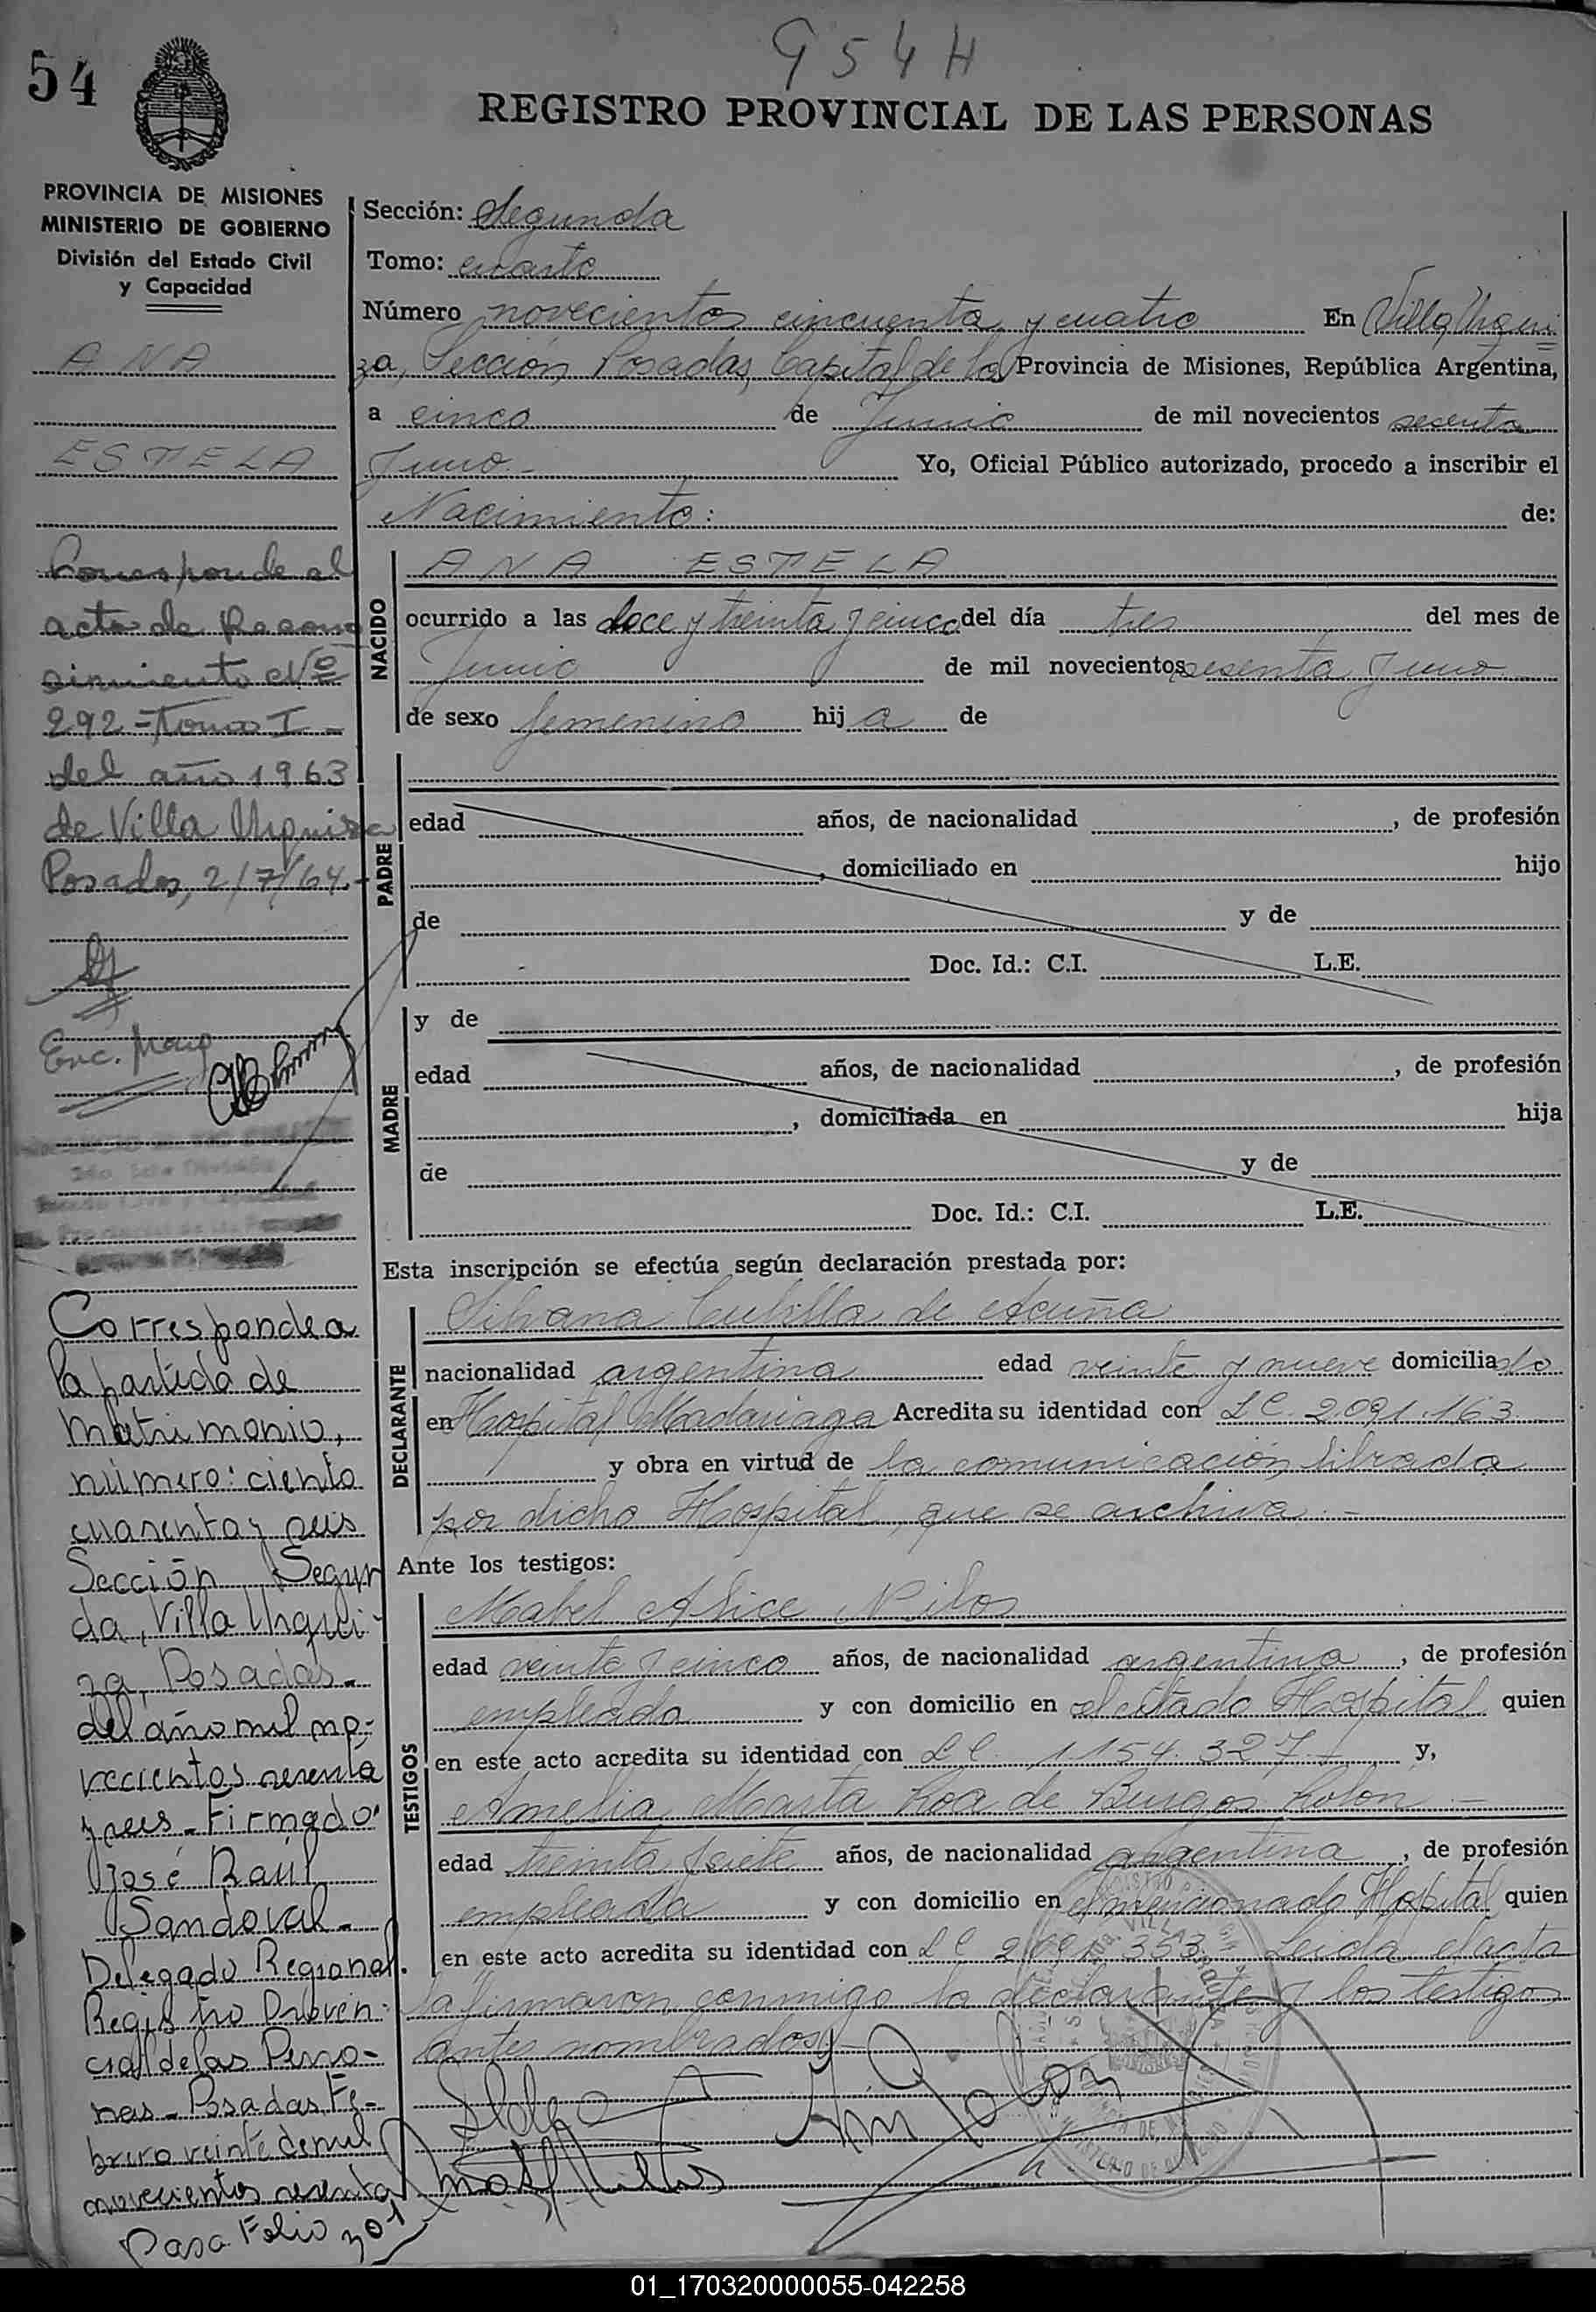 954H
54
REGISTRO PROVINCIAL DE LAS PERSONAS
PROVINCIA DE MISIONES
MINISTERIO DE GOBIERNO
División del Estado Civil
y Capacidad
ANA
ESTELA
Corresponde al
acta de Recono
cimiento Nº
292 = Tomo I -
del año 1963
de Villa Urquiza
Posadas, 2/7/64.-
Enc.
Corresponde a
la partida de
Matrimonio,
número: ciento
cuarenta y seis
Sección Segun
da, Villa Urqui-
za, Posadas.
del año mil no-
vecientos
y seis - Firmado:
José Raúl
Sandoval.
Delegado Regional.
Registro Provin-
cial de las Perso-
nas - Posadas, Fe-
brero veinte de mil
novecientos
Pasa Folio 301
Sección: Segunda
Tomo: cuarto
Número novecientos cincuenta y cuatro En Villa Urqui
za, Sección Posadas, Capital de la Provincia de Misiones, República Argentina,
a cinco de Junio de mil novecientos sesenta
y uno.- Yo, Oficial Público autorizado, procedo a inscribir el
Nacimiento: de:
NACIDO
ANA ESTELA
ocurrido a las doce y treinta y cinco del día tres del mes de
Junio de mil novecientos sesenta y uno
de sexo femenino hija de
PADRE
edad años, de nacionalidad , de profesión
, domiciliado en hijo
de y de
Doc. Id.: C.I. L.E.
MADRE
y de
edad años, de nacionalidad , de profesión
, domiciliada en hija
de y de
Doc. Id.: C.I. L.E.
Esta inscripción se efectúa según declaración prestada por:
DECLARANTE
Silvana Cubilla de Acuña
nacionalidad argentina edad veinte y nueve domiciliado
en Hospital Madariaga Acredita su identidad con LC 2.091.163
y obra en virtud de la comunicación librada
por dicho Hospital, que se archiva.-
Ante los testigos:
TESTIGOS
Mabel Alice
edad veinte y cinco años, de nacionalidad argentina, de profesión
empleada y con domicilio en el citado Hospital quien
en este acto acredita su identidad con LC. 1.154.327.- y,
Amelia Marta Roa de Burgos Rolon -
edad treinta y siete años, de nacionalidad argentina, de profesión
empleada y con domicilio en el mencionado Hospital quien
en este acto acredita su identidad con LC 2.091.353. Leida el acta
la firmaron conmigo la declarante y los testigos
antes nombrados.-
01_170320000055-042258